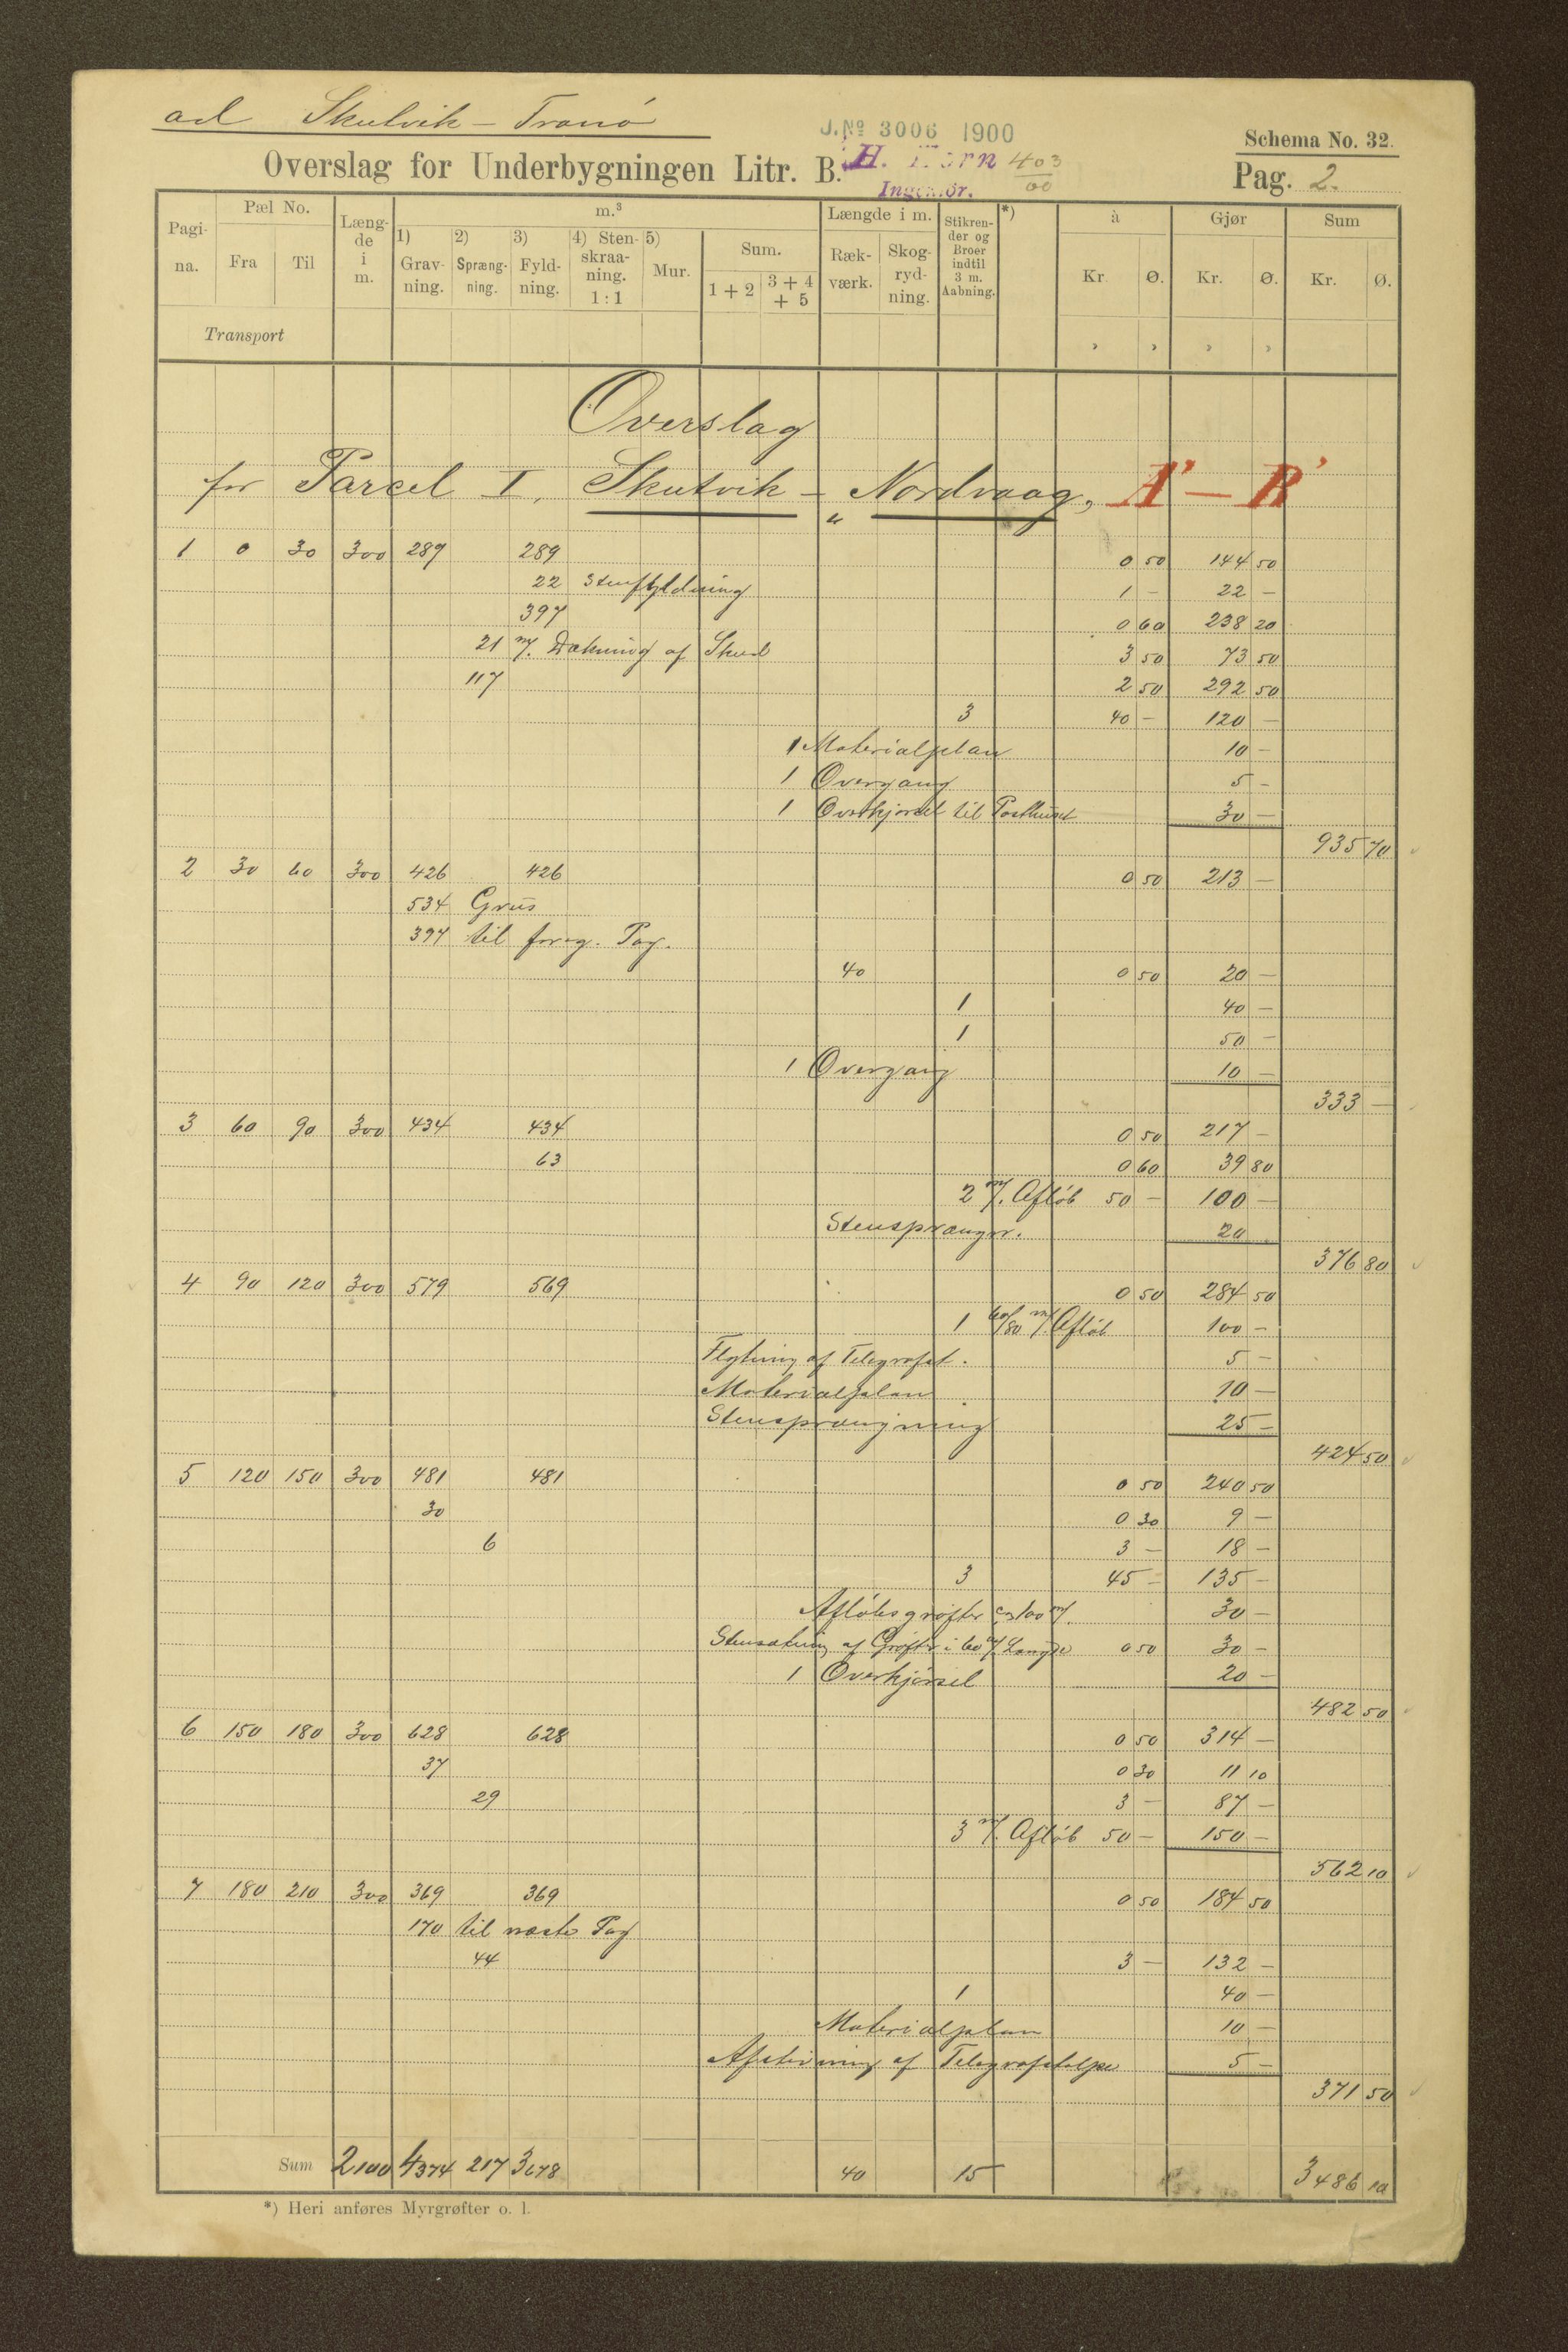 ad Skutvik - Tranö
J. No 3006 1900
Schema No. 32.
Overslag for Underbygningen Litr. B.
H. Horn 403/00
Ingeniør.
Pag. 2.
Pagina. Pæl No. Fra Til Længde i m. m.³ 1) Gravning. 2) Sprængning. 3) Fyldning. 4) Stenskraaning. 1:1 5) Mur. Sum. 1 + 2 3 + 4 + 5 Længde i m. Rækværk. Skogrydning. Stikrender og Broer indtil 3 m. Aabning. *) à Kr. Ø. Gjør Kr. Ø. Sum Kr. Ø.
Transport
Overslag
for Parcel I, Skutvik - Nordvaag, A' - R'
1 0 30 300 289 289 0 50 144 50
22 Stenfyldning 1 - 22 -
397 0 60 238 20
21 m/. Dækning af Skud 3 50 73 50
117 2 50 292 50
3 40 - 120 -
1 Materialplan 10 -
1 Overgang 5 -
1 Overkjørsel til Posthuset 30 -
935 70
2 30 60 300 426 426 0 50 213 -
534 Grus
397 til foreg. Pag.
40 0 50 20 -
1 40 -
1 50 -
1 Overgang 10 -
333 -
3 60 90 300 434 434 0 50 217 -
63 0 60 39 80
2 m/. Afløb 50 - 100 -
Stensprængn. 20
376 80
4 90 120 300 579 569 0 50 284 50
1 60/80 m/. Afløb 100 -
Flytning af Telegrafst. 5 -
Materialplan 10 -
Stensprængning 25 -
424 50
5 120 150 300 481 481 0 50 240 50
30 0 30 9 -
6 3 - 18 -
3 45 - 135 -
Afløbsgrøfter ca 100 m/. 30 -
Stensætning af Grøfter i 60 m/. Længde 0 50 30 -
1 Overkjørsel 20 -
482 50
6 150 180 300 628 628 0 50 314 -
37 0 30 11 10
29 3 - 87 -
3 m/. Afløb 50 - 150 -
562 10
7 180 210 300 369 369 0 50 184 50
170 til næste Pag
44 3 - 132 -
1 40 -
Materialplan 10 -
Afstivning af Telegrafstolpe 5 -
371 50
Sum 2100 4374 217 3678 40 15 3486 10
*) Heri anføres Myrgrøfter o. l.